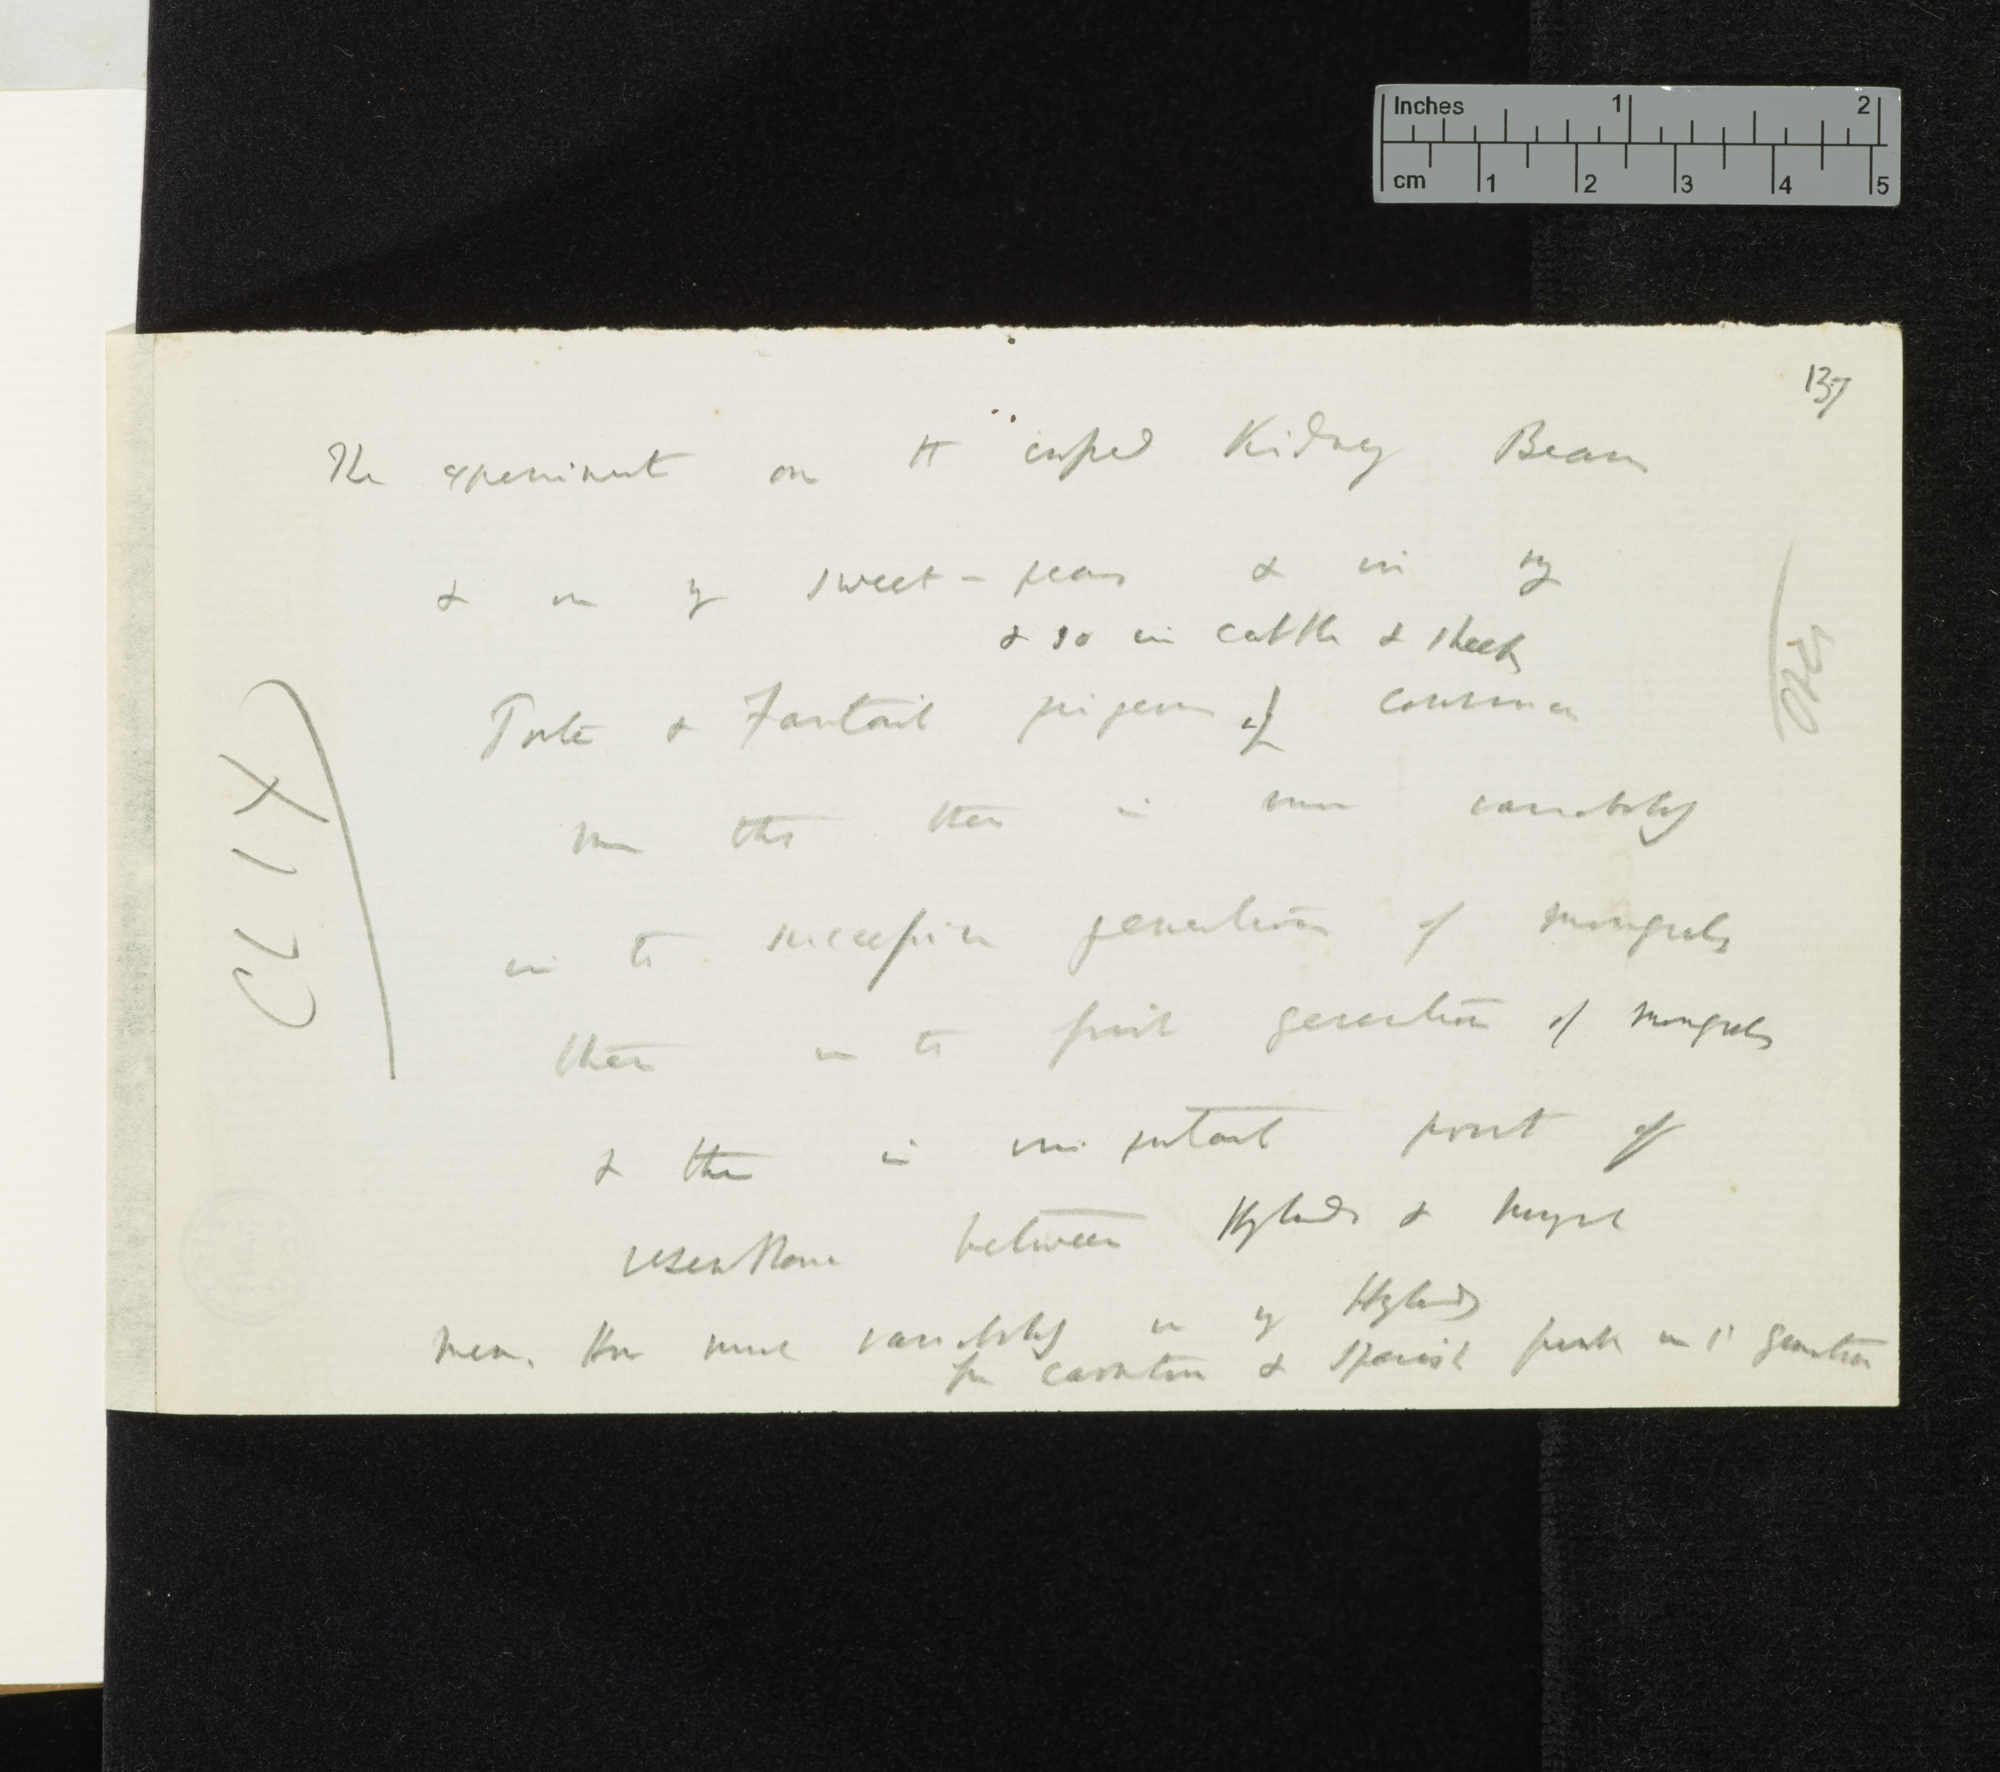 137
The experiment on the crossed Kidney Beans
& on my sweet-peas & in my
& so in cattle & sheep
Fantail pigeons of course
me that there is more variability
in the successive generations of mongrels
than in the first generation of mongrels
& this is important point of
resemblance between Hybrids & Mongrel
Mem. How much variability in my Hybrids
from carnation & Spanish pink in 1st generation
CLIX
Inches 1 2
cm 1 2 3 4 5